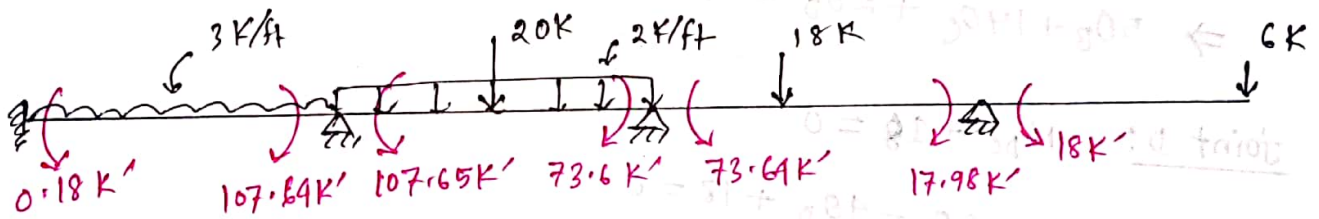 3 K/ft 20K 2K/ft 18K 6K
0.18 K' 107.64K' 107.65K' 73.6 K' 73.64K' 17.98K' 18K'